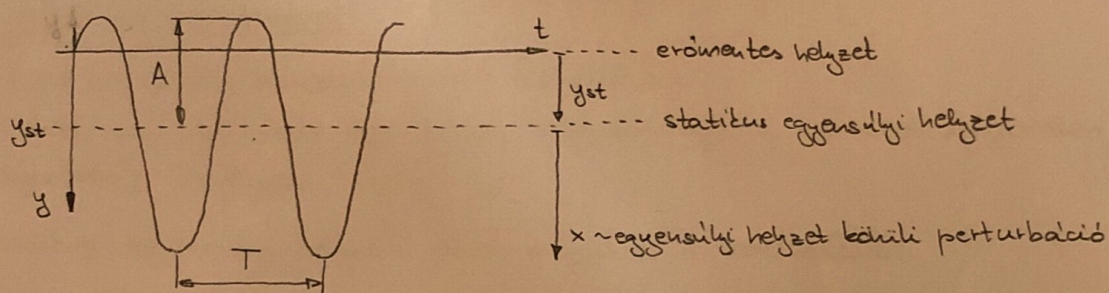 t
erőmentes helyzet
A
yst
yst
statikus egyensúlyi helyzet
y
x ~egyensúlyi helyzet körüli perturbáció
T